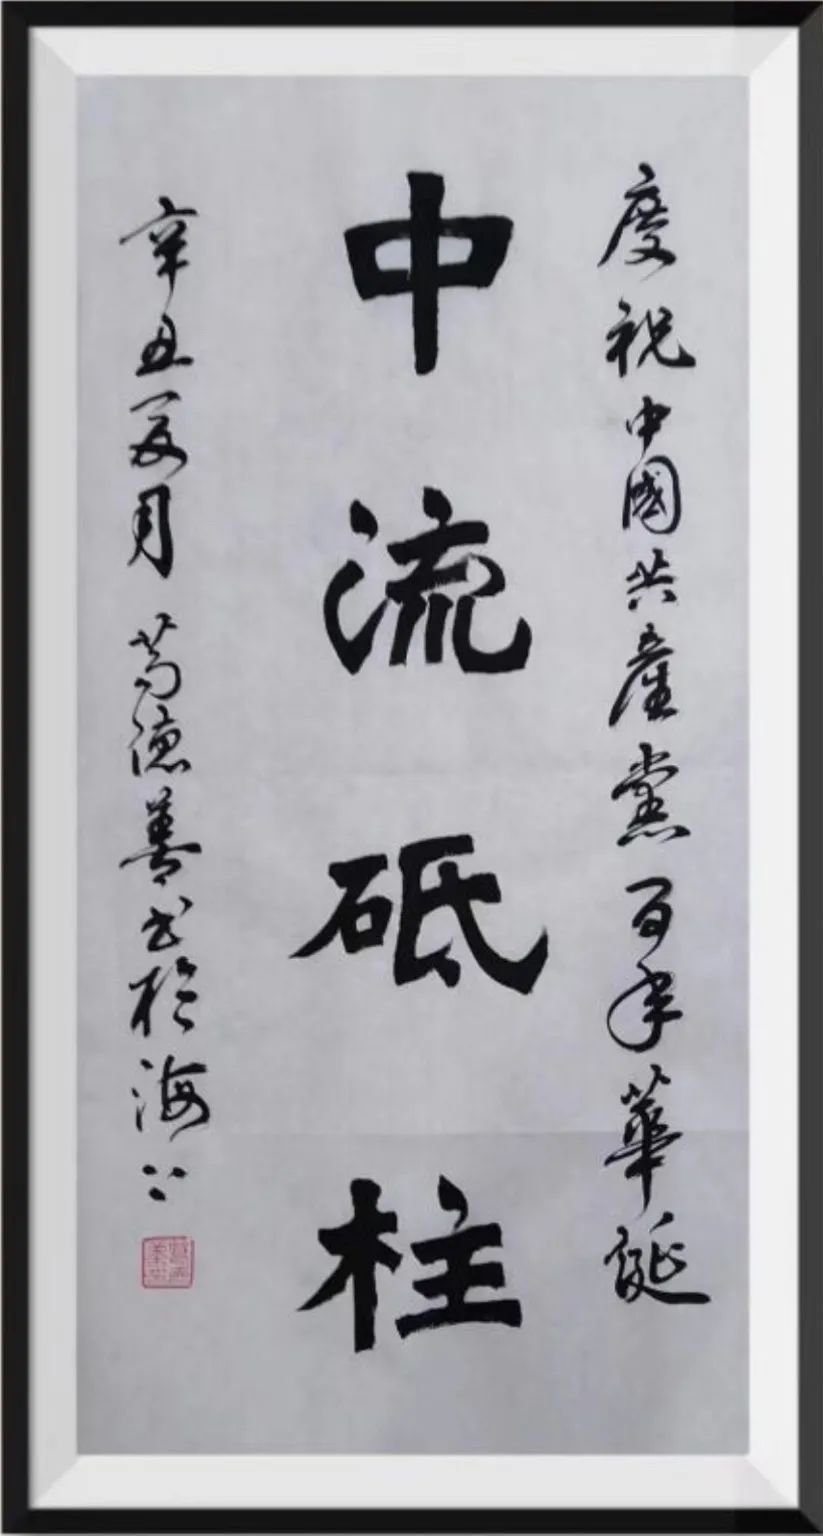 慶祝中國共產黨百年華誕
中流砥柱
辛丑夏月 葛德善书於海上